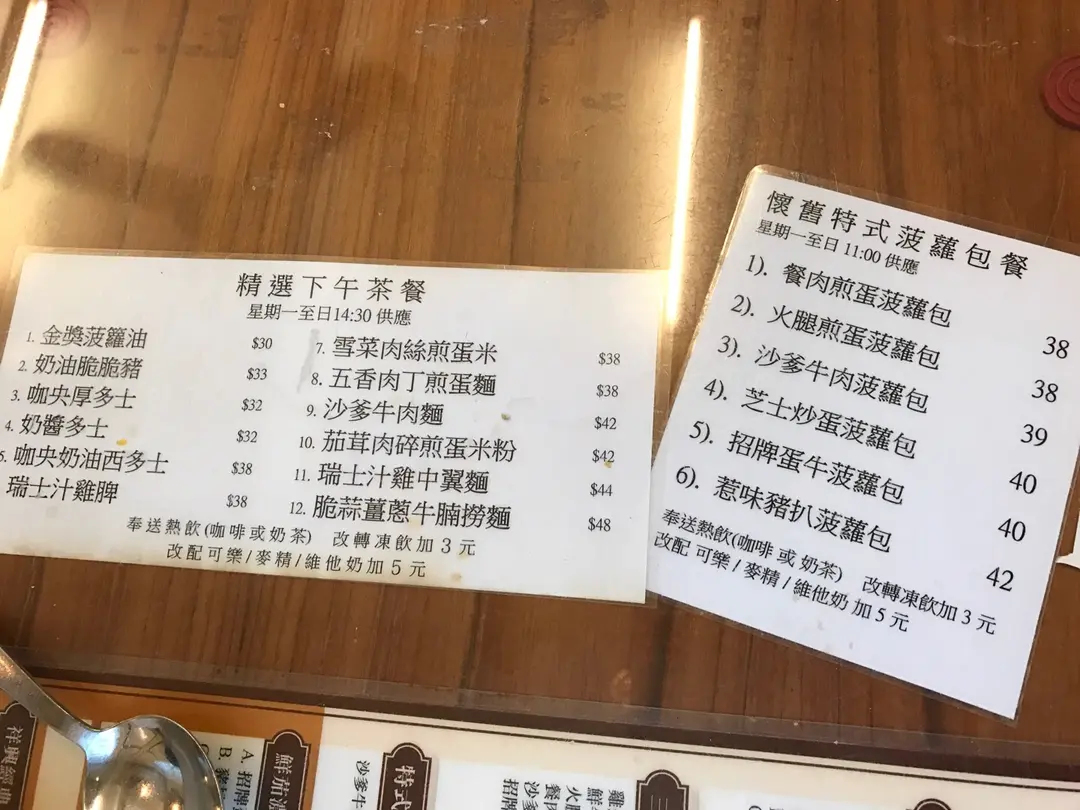 精選下午茶餐
星期一至日14:30 供應
1. 金獎菠籮油 $30
2. 奶油脆脆豬 $33
3. 咖央厚多士 $32
4. 奶醬多士 $32
5. 咖央奶油西多士 $38
瑞士汁雞脾 $38
7. 雪菜肉絲煎蛋米 $38
8. 五香肉丁煎蛋麵 $38
9. 沙爹牛肉麵 $42
10. 茄茸肉碎煎蛋米粉 $42
11. 瑞士汁雞中翼麵 $44
12. 脆蒜薑蔥牛腩撈麵 $48
奉送熱飲(咖啡或奶茶) 改轉凍飲加 3 元
改配可樂/麥精/維他奶加 5 元
懷舊特式菠蘿包餐
星期一至日 11:00 供應
1). 餐肉煎蛋菠蘿包 38
2). 火腿煎蛋菠蘿包 38
3). 沙爹牛肉菠蘿包 39
4). 芝士炒蛋菠蘿包 40
5). 招牌蛋牛菠蘿包 40
6). 惹味豬扒菠蘿包 42
奉送熱飲(咖啡 或 奶茶) 改轉凍飲加 3 元
改配 可樂/麥精/維他奶 加 5 元
鮮茄
A. 招牌
B.
特式
沙爹牛
三
招牌